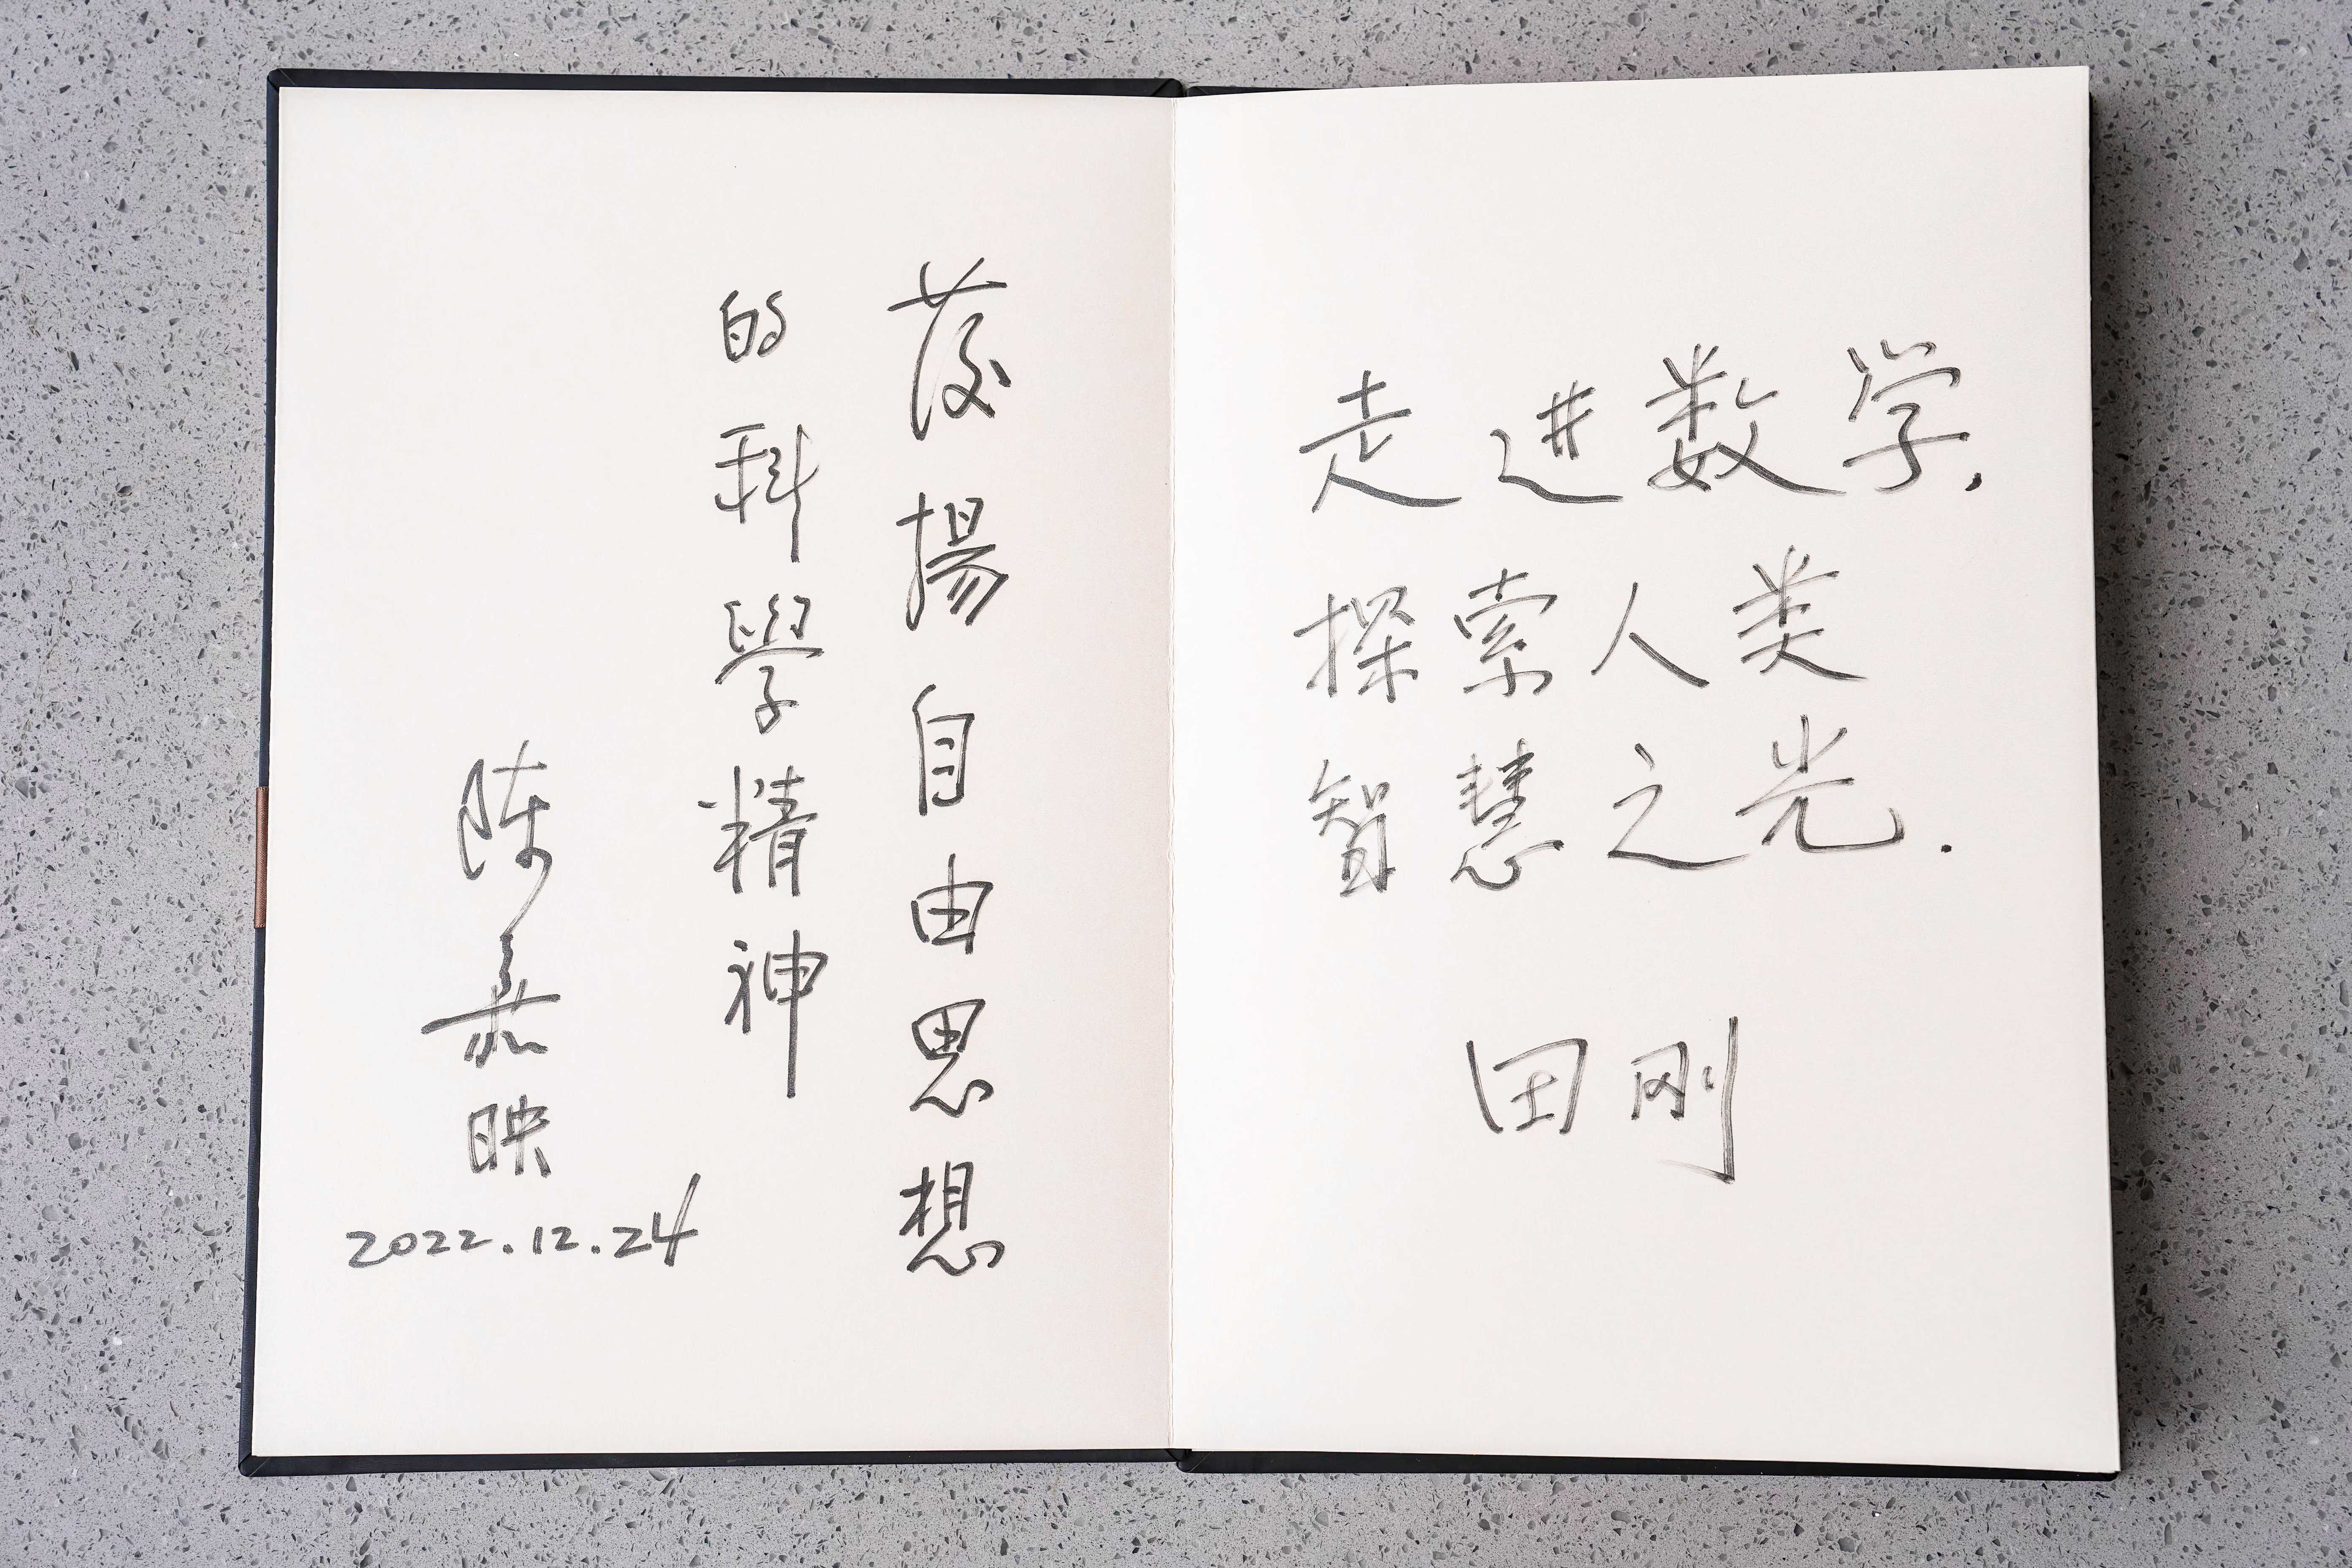 發揚自由思想
的科學精神
陈嘉映
2022.12.24
走进数学.
探索人类
智慧之光.
田刚